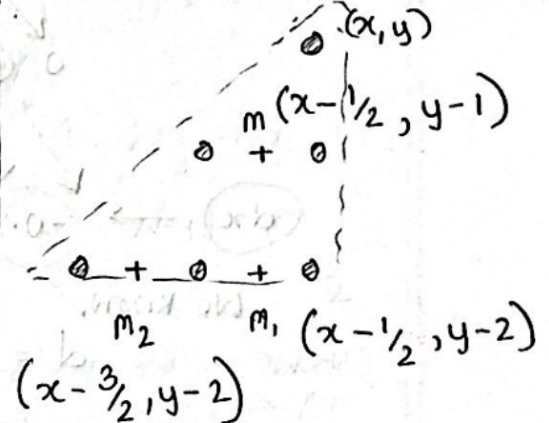 (x, y)
m (x-1/2, y-1)
+
+ +
m₂ m₁ (x-1/2, y-2)
(x-3/2, y-2)